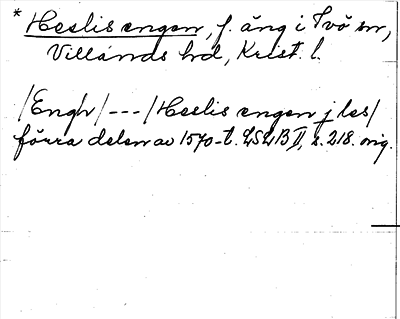 * Heslis engen, f. äng i Ivö sn,
Villands hd, Krist. l.
/Engh/---/Heslis engen j les/
förra delen av 1570-t. LSLB II, s. 218. orig.